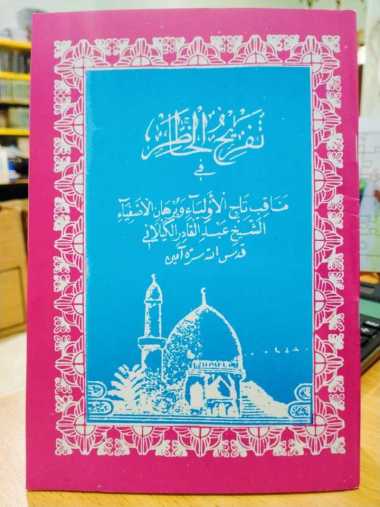 تفريح الخاطر
في
مناقب تاج الأولياء وبرهان الأصفياء
الشيخ عبد القادر الكيلاني
قدس الله سره آمين